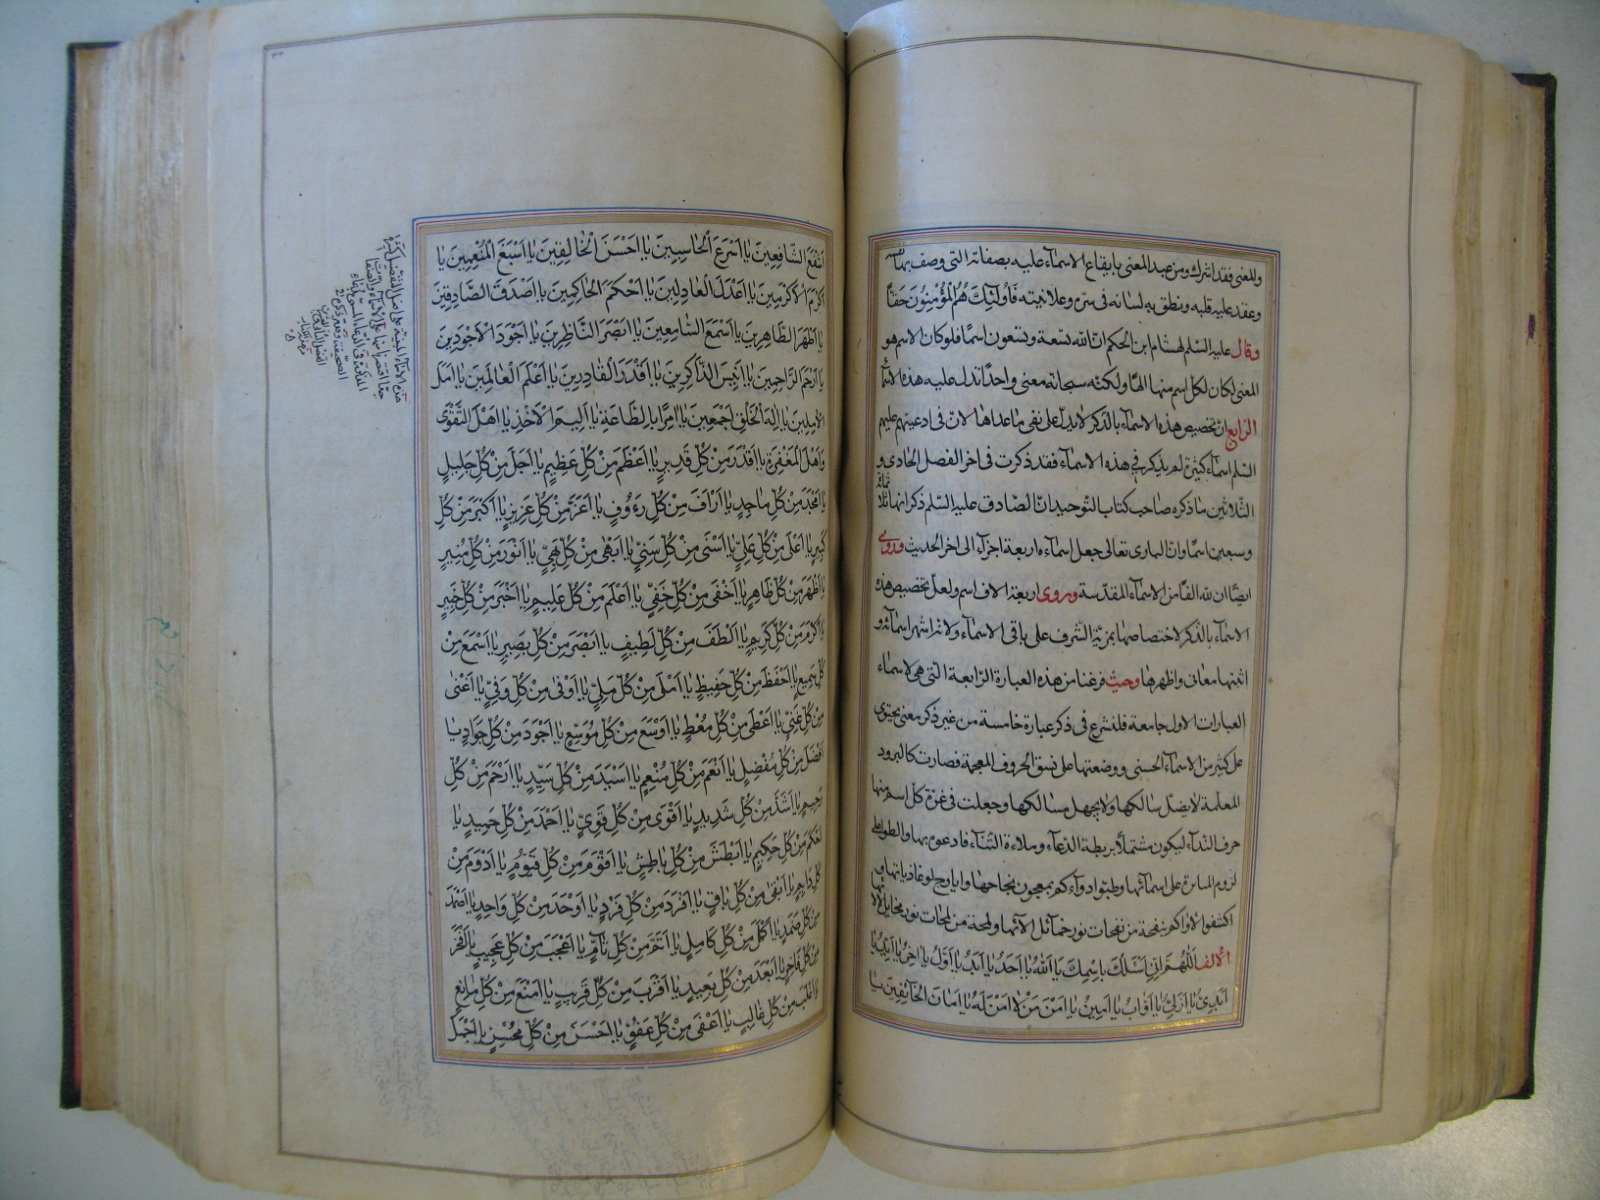 وللمعنى فقد اشرك ومن عبد المعنى بايقاع الاسمآء عليه بصفاته التى وصف بها نفسه
وعقد عليه قلبه ونطق به لسانه فى سره وعلانيته فأولئك هم المؤمنون حقا
وقال عليه السلم لهشام ابن الحكم ان لله تسعة وتسعون اسما فلو كان الاسم هو
المعنى لكان لكل اسم منها الها ولكنه سبحانه معنى واحدا تدل عليه هذه الاسمآء
الرابع ان تخصيص هذه الاسمآء بالذكر لا يدل على نفى ما عداها لان فى ادعيتهم عليهم
السلم اسمآء كثيرة لم يذكر فى هذه الاسمآء فقد ذكرت فى اخر الفصل الحادى و
الثلاثين ما ذكره صاحب كتاب التوحيد ان الصادق عليه السلم ذكر انها ثلاثمائة
وسبعين اسما وان البارى تعالى جعل اسمآءه اربعة اجزآء الى اخر الحديث وروى
ايضا ان لله الفا من الاسمآء المقدسة وروى اربعة الاف اسم ولعل تخصيص هذه
الاسمآء بالذكر لاختصاصها بمزية الشرف على باقى الاسمآء ولانها اشهر اسمائه و
اثبتها معانى واظهرها وحيث فرغنا من هذه العبارة الرابعة التى هى لاسمآء
العبارات الاول جامعة فلنشرع فى ذكر عبارة خامسة من غير ذكر معنى يحتوى
على كثير من الاسمآء الحسنى ووضعتها على نسق الحروف المعجمة فصارت كالبرود
المعلمة لا يضل سالكها ولا يجهل مسالكها وجعلت فى غرة كل اسم منها
حرف الندآء ليكون مشتملا بريطة الدعآء وملاءة الثناء فادعوه بها
لزوم المثابرة على اسمائها وطبوا
اكشفوا نفحة من نفحات نور خمائل الائها ولمحة من لمحات نور
الالف اللهم انى اسئلك باسمك يا الله يا احد يا ابد يا اول يا اخر يا
ابدى يا ازلى يا اواب يا امين يا امن من لا امن له يا امان الخائفين يا
انفع الشافعين يا اسرع الحاسبين يا احسن الخالقين يا اسبغ المنعمين يا
اكرم الاكرمين يا اعدل العادلين يا احكم الحاكمين يا اصدق الصادقين
يا اطهر الطاهرين يا اسمع السامعين يا ابصر الناظرين يا اجود الاجودين
يا ارحم الراحمين يا انيس الذاكرين يا اقدر القادرين يا اعلم العالمين يا امل
الاملين يا اله الخلق اجمعين يا امرا بالطاعة يا اليم الاخذ يا اهل التقوى
واهل المغفرة يا اقدر من كل قدير يا اعظم من كل عظيم يا اجل من كل جليل
يا امجد من كل ماجد يا اراف من كل رءوف يا اعز من كل عزيز يا اكبر من كل
كبير يا اعلى من كل على يا اسنى من كل سنى يا ابهى من كل بهى يا انور من كل منير
يا اظهر من كل ظاهر يا اخفى من كل خفى يا اعلم من كل عليم يا اخبر من كل خبير
يا اكرم من كل كريم يا الطف من كل لطيف يا ابصر من كل بصير يا اسمع من
كل سميع يا احفظ من كل حفيظ يا املى من كل ملى يا اوفى من كل وفى يا اغنى
من كل غنى يا اعطى من كل معط يا اوسع من كل موسع يا اجود من كل جواد يا
افضل من كل مفضل يا انعم من كل منعم يا اسيد من كل سيد يا ارحم من كل
رحيم يا اشد من كل شديد يا اقوى من كل قوى يا احمد من كل حميد يا
احكم من كل حكيم يا ابطش من كل باطش يا اقوم من كل قيوم يا ادوم من
كل دايم يا ابقى من كل باق يا افرد من كل فرد يا اوحد من كل واحد يا اصمد
من كل صمد يا اكمل من كل كامل يا اتم من كل تام يا اعجب من كل عجيب يا افخر
من كل فاخر يا ابعد من كل بعيد يا اقرب من كل قريب يا امنع من كل مانع
يا اغلب من كل غالب يا اعفى من كل عفو يا احسن من كل محسن يا اجمل